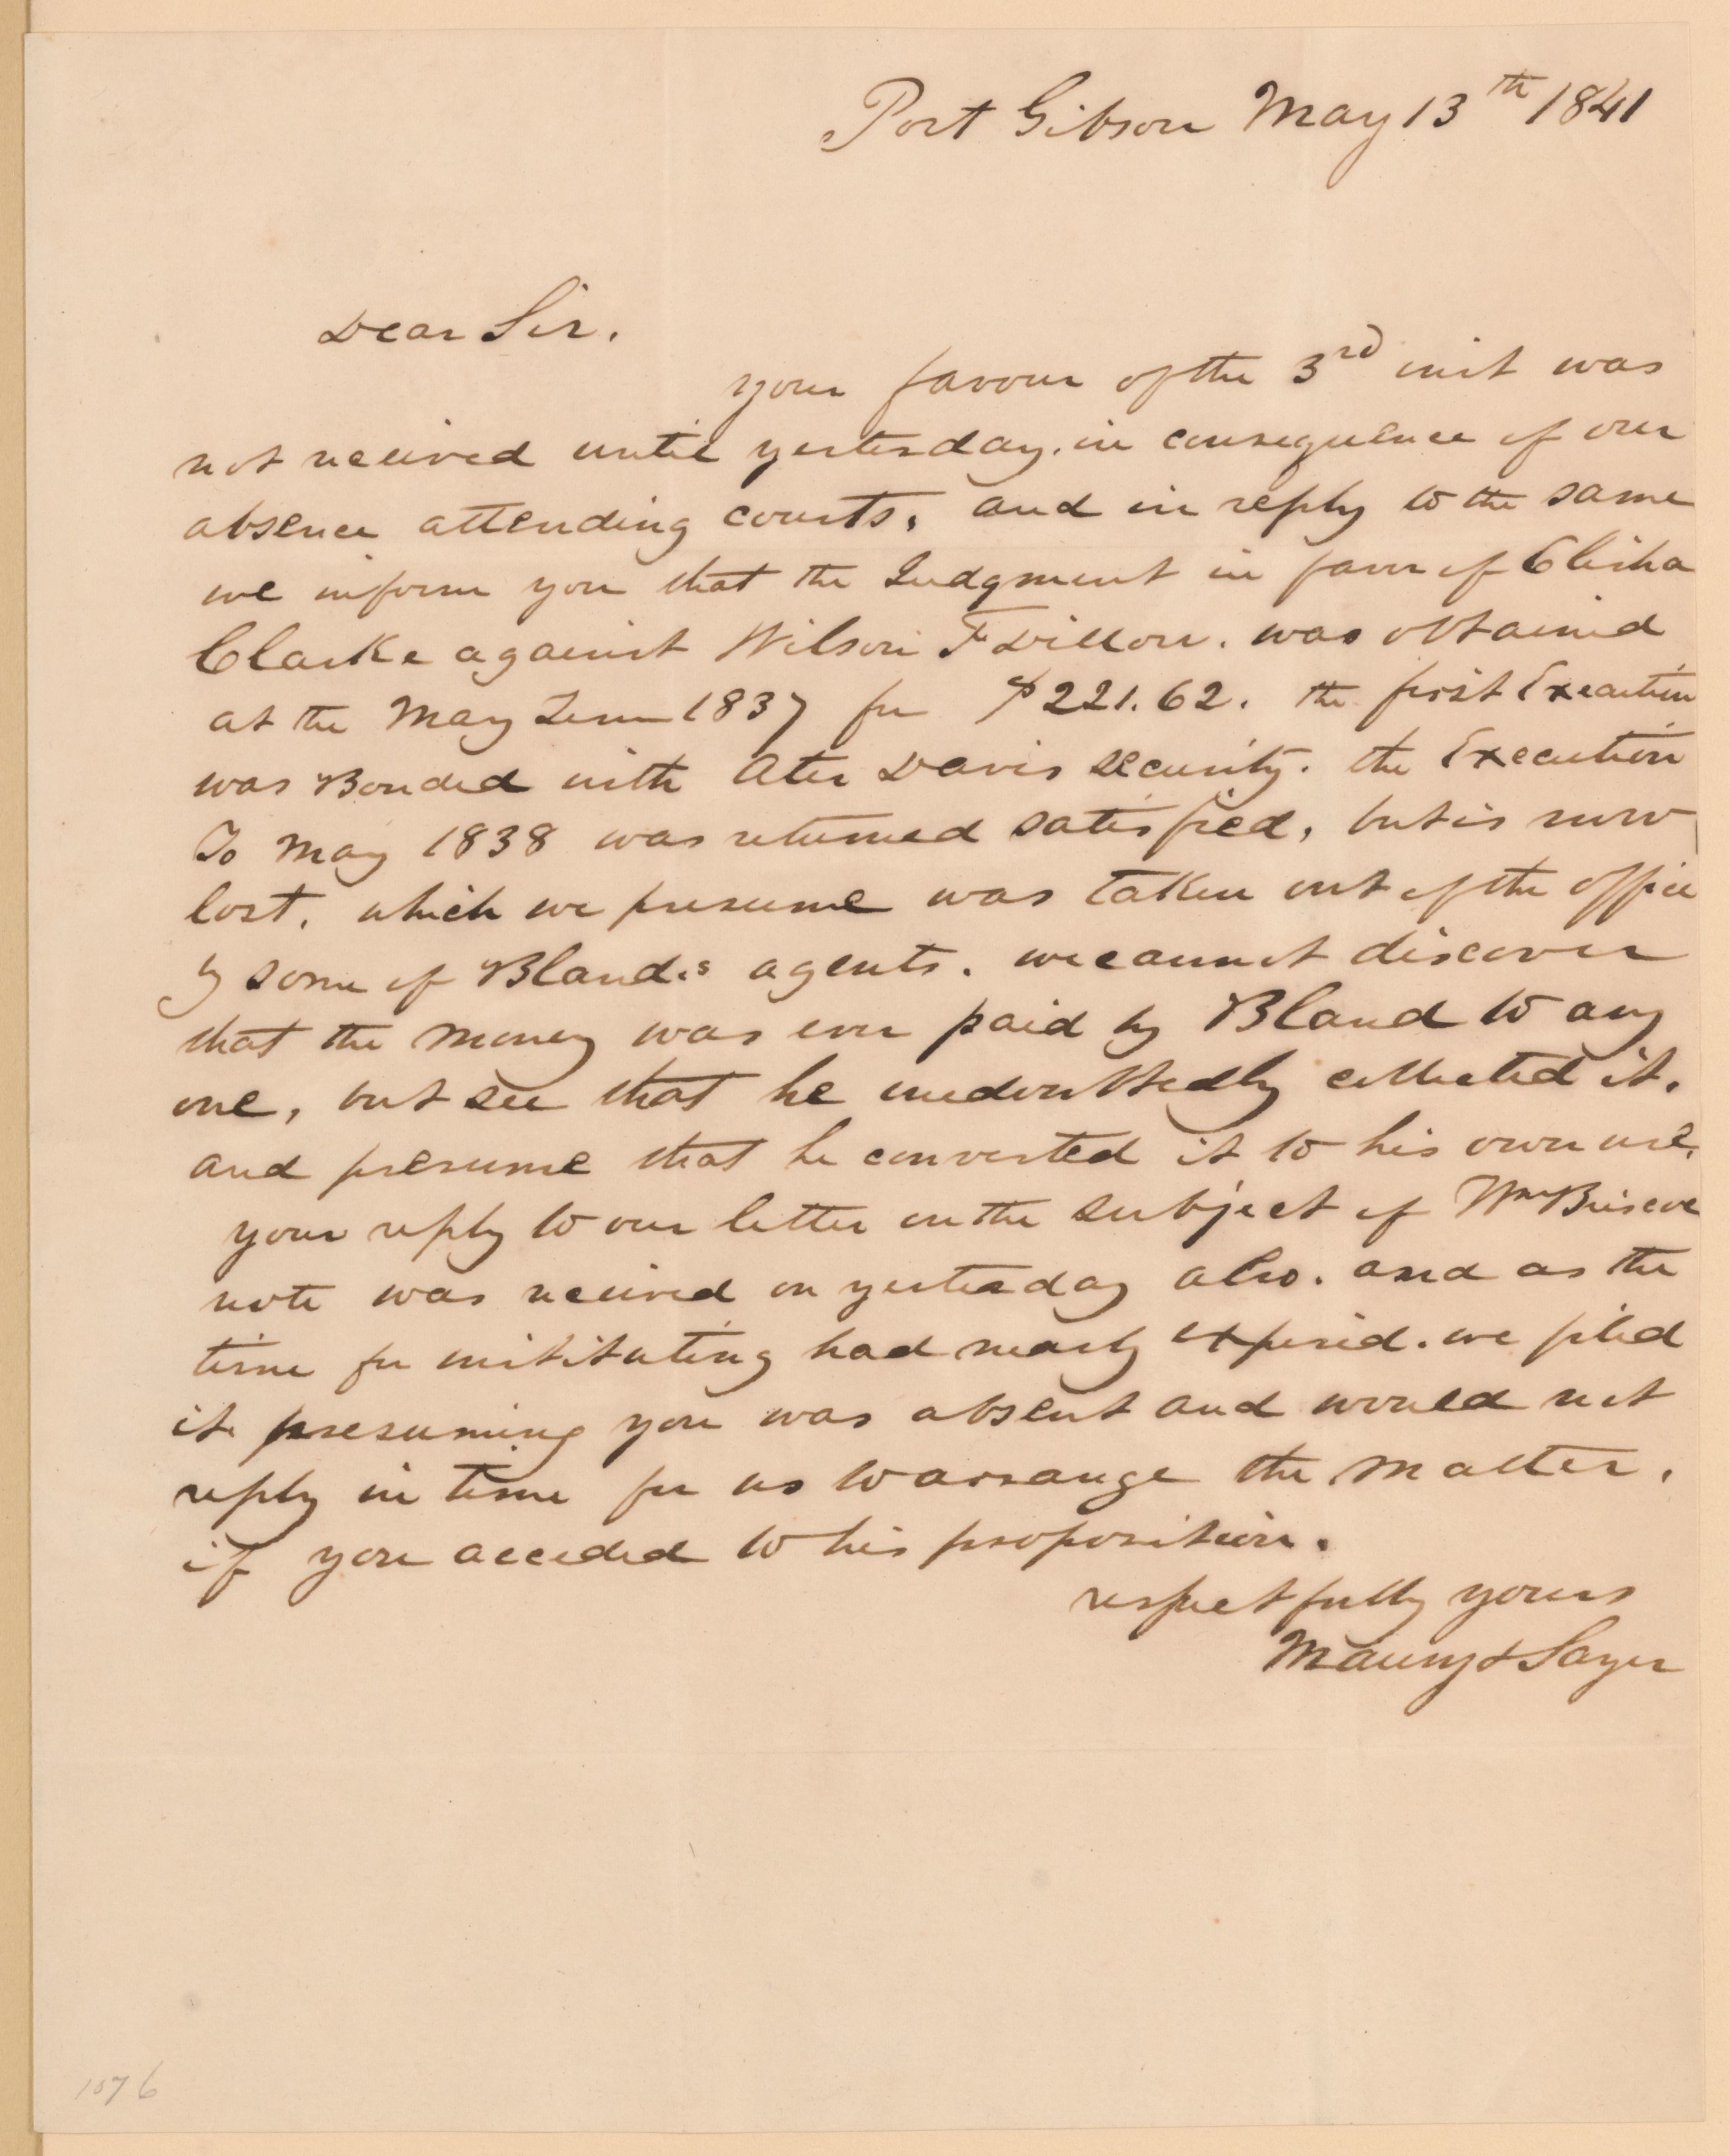 Port Gibson May 13th 1841
Dear Sir.
your favour of the 3rd inst was
not received until yesterday. in consequence of our
absence attending courts, and in reply to the same
we inform you that the Judgment in favor of Elisha
Clarke against Wilson F Dillon. was obtained
at the May Term 1837 for $221.62. the first Execution
was Bonded with Ater Davis security. the Execution
To May 1838 was returned satisfied, but is now
lost. which we presume was taken out of the office
by some of Bland.s agents. we cannot discover
that the money was ever paid by Bland to any
one, but see that he undoubtedly collected it.
and presume that he converted it to his own use.
your reply to our letter on the subject of Wm Briscoe
note was received on yesterday also. and as the
time for instituting had nearly expired. we filed
it. presuming you was absent and would not
reply in time for us to arrange the matter,
if you acceded to his proposition.
respectfully yours
Maury & Sayer
1076